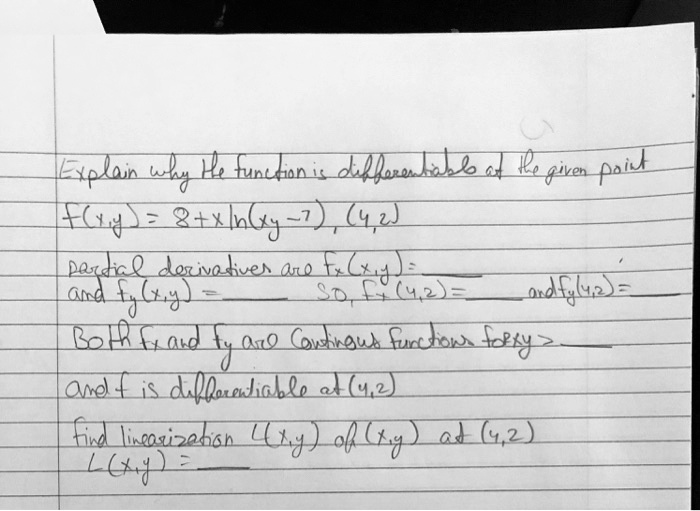 Explain why the function is differentiable at the given point
f(x,y) = 8+x ln(xy-7), (4,2)
partial derivatives are fx(x,y)= ____
and fy(x,y) = ____ SO, fx(4,2)= ____ and fy(4,2)= ____
Both fx and fy are Continous functions for xy > ____
and f is differentiable at (4,2)
find linearization L(x,y) of (x,y) at (4,2)
L(x,y) = ____